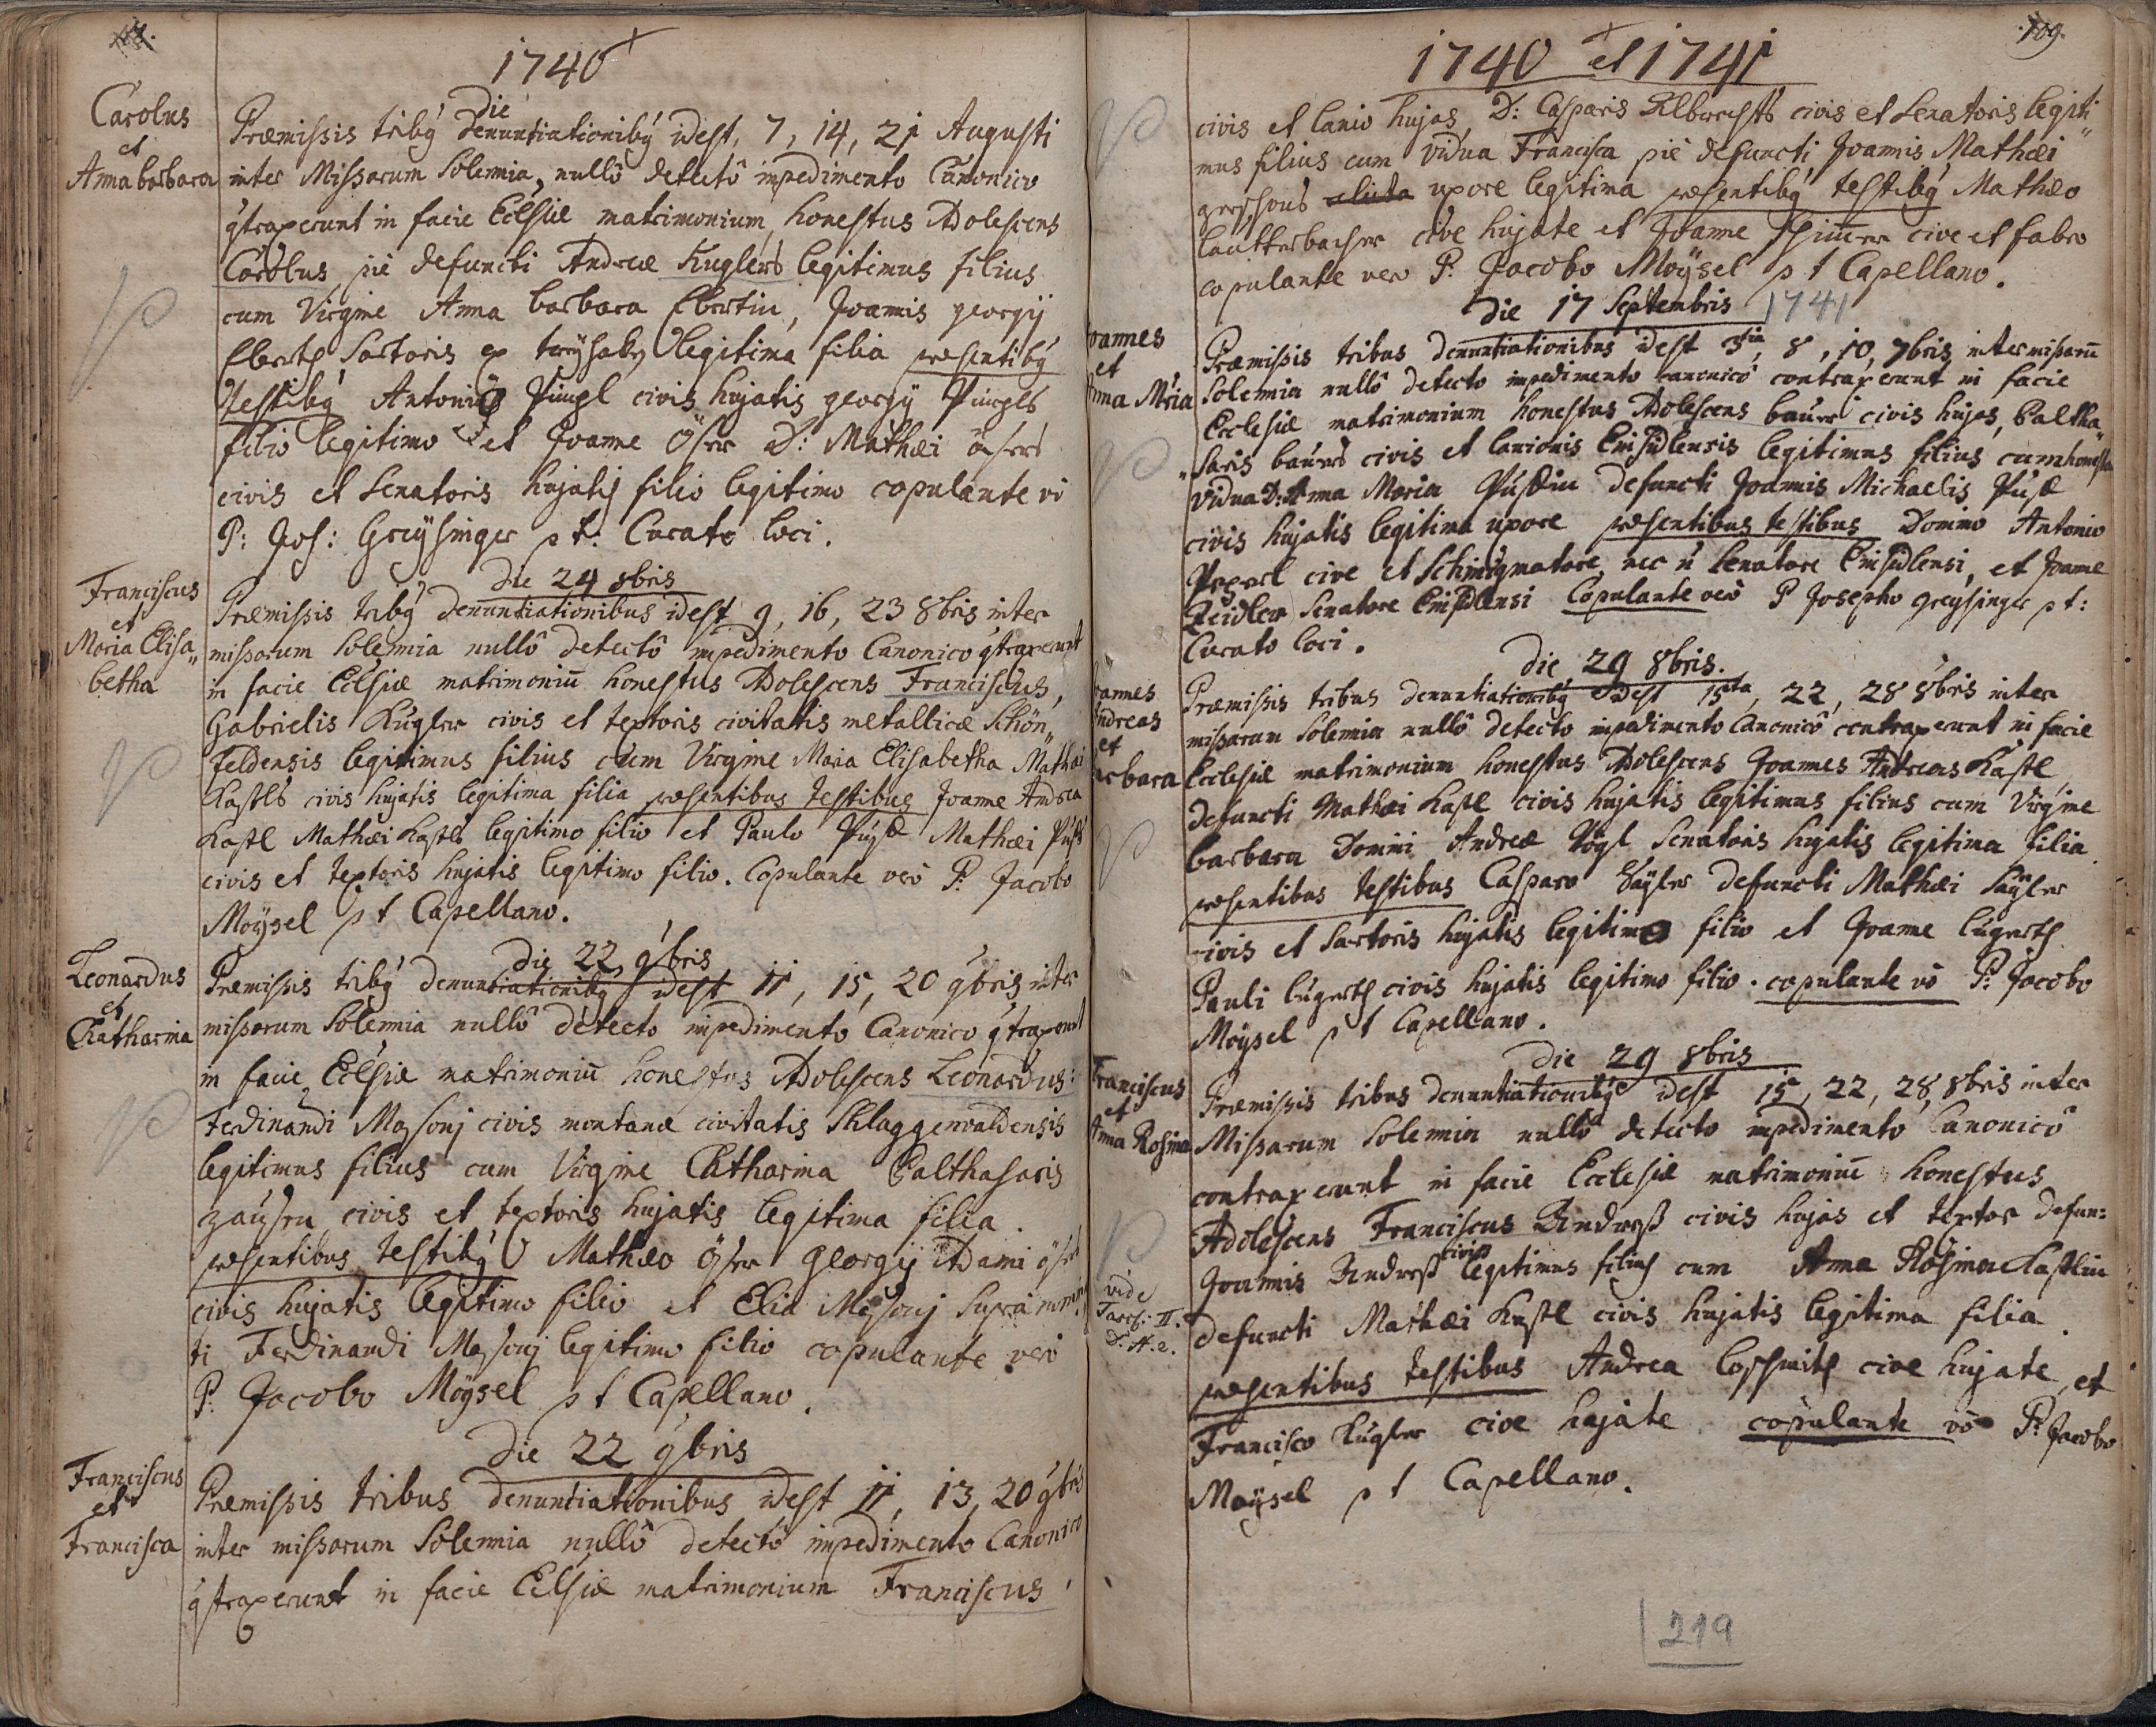 1740
Carolus
et
Anna barbara
Die
Præmissis tribq denuntiationibq idest, 7, 14, 21 Augusti
inter Missarum Solemnia, nullô detectô impedimento Canonico
qtraxerunt in facie Ecclsiæ matrimonium, honestus Adolescens
Carolus pie defuncti Andreæ Kuglers legitimus filius
cum Virgine Anna barbara Ebertin, Joannis georgij
Eberts Sartoris ex legitima filia præsentibq
Testibq Antonio Püngl civis hujatis georgij Püngls
filio legitimo et Joanne Öser D: Mathæi ösers
civis et Senatoris hujatis filio legitimo copulante vò
P: Jos: Greysinger p t: Curato loci.
Franciscus
et
Maria Elisa„
betha
die 24 8bris
Præmissis tribq denuntiationibus idest 9, 16, 23 8bris inter
missarum Solemnia nullô detectô impedimento Canonico qtraxerunt
in facie Ecclsiæ matrimoniū honestus Adolescens Franciscus,
Gabrielis Kugler civis et textoris civitatis metallicæ Schön„
feldensis legitimus filius cum Virgine Maria Elisabetha Mathæi
Kastls civis hujatis legitima filia præsentibus testibus Joanne Andrea
Kastl Mathæi Kastls legitimo filio et Paulo Mathæi
civis et textoris hujatis legitimo filio. Copulante verò P: Jacobo
Moÿsel p t Capellano.
Leonardus
et
Catharina
die 22 9bris
Præmissis tribq denuntiationibq idest 11, 15, 20 9bris inter
missarum Solemnia nullô detecto impedimento Canonico qtraxerunt
in facie Ecclsiæ matrimoniū honestus Adolescens Leonardus:
Ferdinandi Masonj civis montanæ civitatis Schlaggenwaldensis
legitimus filius cum Virgine Catharina Balthasaris
civis et textoris hujatis legitima filia.
præsentibus testibq Mathæo Öser georgij Adami öser
civis hujatis legitimo filio et Elia Masonj Supra
ti Ferdinandi Masonj legitimo filio copulante verò
P: Jacobo Moÿsel p t Capellano.
Franciscus
et
Francisca
die 22 9bris
Præmissis tribus denuntiationibus idest 11, 13, 20 9bris
inter missarum Solemnia nullô detectô impedimento Canonico
qtraxerunt in facie Ecclsiæ matrimonium Franciscus
1740 et 1741
109.
civis et lanio hujas, D: Casparis Albrechts civis et Senatoris legiti„
mus filius cum vidua Francisca piè defuncti Joannis Mathæi
relicta uxore legitima præsentibq testibq Mathæo
Lautterbacher cive hujate et Joanne cive et fabro
copulante vero P: Jacobo Moÿsel p t Capellano.
Joannes
et
Anna Mria
die 17 Septembris 1741
Præmissis tribus denuntiationibus idest 3tia, 8, 10, 7bris inter missarū
Solemnia nullô detecto impedimento canonicô contraxerunt in facie
Ecclesiæ matrimonium honestus Adolescens bauer civis hujas, Baltha„
„saris bauers civis et lanionis Einsidlensis legitimus filius cum honesta
vidua D: Anna Maria defuncti Joannis Michaelis
civis hujatis legitima uxore præsentibus testibus Domino Antonio
cive et nec ñ Senatore Einsidlensi, et Joanne
Zeidler Senatore Einsidlensi Copulante verò P Josepho greysinger p t:
Curato loci.
Joannes
Andreas
et
barbara
die 29 8bris.
Præmissis tribus denuntiationibq idest 15ta, 22, 28 8bris inter
missarum Solemnia nullô detecto impedimento Canonicô contraxerunt in facie
Ecclesiæ matrimonium honestus Adolescens Joannes Andreas Kastl
defuncti Mathæi Kastl civis hujatis legitimus filius cum Virgine
barbara Domini Andreæ Vögl Senatoris hujatis legitima filia
præsentibus testibus Casparo Sayler defuncti Mathæi Saÿler
civis et Sartoris hujatis legitimo filio et Joanne lugerth
Pauli lugerth civis hujatis legitimo filio. copulante vò P: Jacobo
Moÿsel p t Capellano.
Franciscus
et
Anna Rosina
die 29 8bris
Præmissis tribus denuntiationibq idest 15, 22, 28, 8bris inter
Missarum Solemnia nullô detecto impedimento Canonicô
contraxerunt in facie Ecclesiæ matrimoniū honestus
Adolescens Franciscus Andreß civis hujas et textor defun:
Joannis Andreß civis legitimus filius cum Anna Rosina Kastlin
defuncti Mathæi Kastl civis hujatis legitima filia.
vide
Fasc: II.
D: N. 2.
præsentibus testibus Andrea cive hujate, et
Francisco Kugler cive hujate copulante vò P: Jacobo
Moÿsel p t Capellano.
219